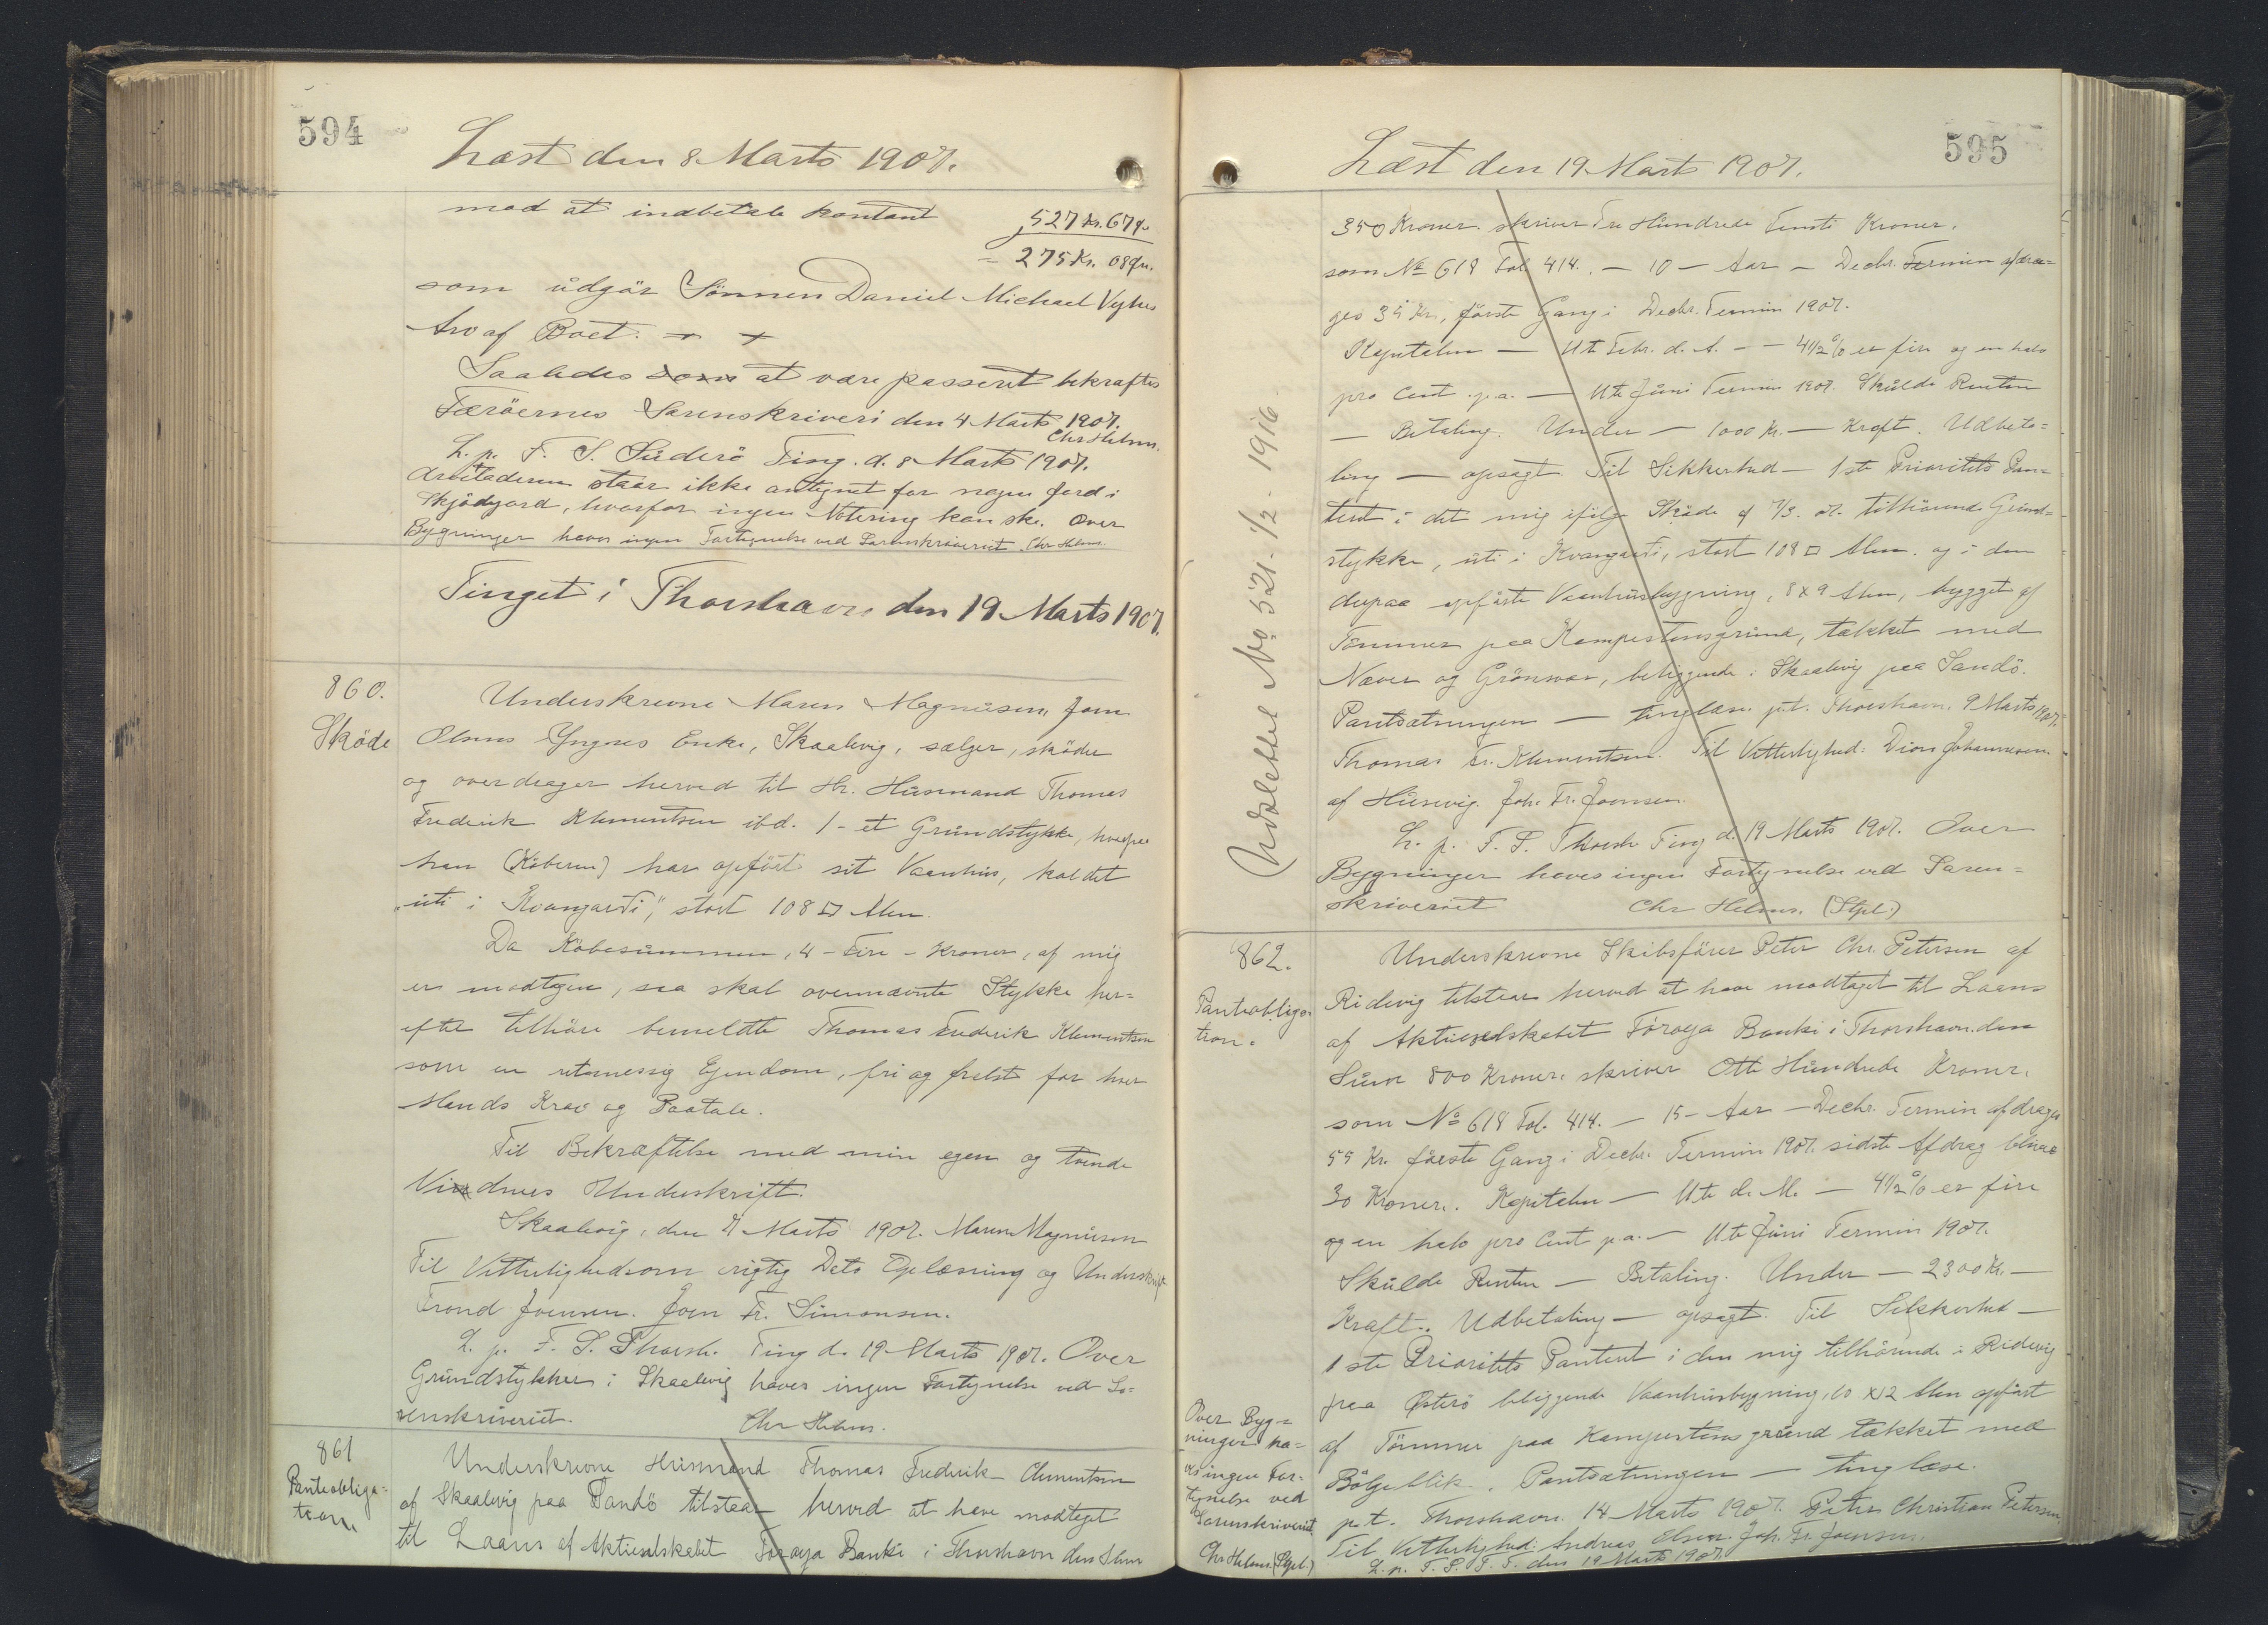 594
Læst den 8 Marts 1907.
mod at indbetale kontant 527 Kr. 67 Ør.
= 275 Kr. 08 Ør.
som udgör Sönnen Daniel Michael Vyhus
Arv af Boet.
Saaledes som at være passeret bekræftes
Færöernes Sorenskriveri den 4 Marts 1907.
Chr Helms.
L. p. F. S. Suderö Ting. d. 8 Marts 1907.
Arveladeren staar ikke antegnet for nogen Jord i
Skjödejord, hvorfor ingen Notering kan ske. Over
Bygninger haves ingen Fortegnelse ved Sorenskriveriet. Chr Helms.
Tinget i Thorshavn den 19 Marts 1907.
860.
Sköde
Underskrevne Maren Magnusen, Joen
Olsens Yngres Enke, Skaalevig, sælger, sköder
og overdrager herved til Hr. Husmand Thomas
Frederik Klementsen ibd. 1 - et Grundstykke, hvorpaa
han (Köberen) har opfört sit Vaanhus, kaldet
"uti i Kvangardi," stort 108 □ Alen.
Da Köbesummen, 4 - Fire - Kroner, af mig
er modtagen, saa skal ovennævnte Stykke her=
efter tilhöre bemeldte Thomas Frederik Klementsen
som en retmessig Ejendom, fri og frelst for hver
Mands Krav og Paatale.
Til Bekræftelse med min egen og tvende
Vidners Underskrift.
Skaalevig, den 7 Marts 1907. Maren Magnusen
Til Vitterlighed om rigtig Dato Oplæsning og Underskrift
Trond Joensen. Joen Fr. Simonsen.
L. p. F. S. Thorsh. Ting d. 19 Marts 1907. Over
Grundstykker i Skaalevig haves ingen Fortegnelse ved So=
renskriveriet. Chr Helms.
861
Panteobliga=
tion.
Underskrevne Husmand Thomas Frederik Clementsen
af Skaalevig paa Sandö tilstaar herved at have modtaget
til Laans af Aktieselskabet Föroya Banki i Thorshavn den Sum
595
Læst den 19 Marts 1907.
350 Kroner. skriver Tre Hundrede Femti Kroner.
som No 618 Fol. 414. — 10 — Aar — Decbr. Termin afdra=
ges 35 Kr., förste Gang i Decbr. Termin 1907.
Kapitalen — 11te Febr. d. A. — 4 1/2 % er fire og en halv
pro Cent p.a. — 11te Juni Termin 1907. Skulde Renten
— Betaling. Under — 1000 Kr. — Kraft. Udbeta=
ling — opsagt. Til Sikkerhed — 1ste Prioritets Pan=
teret i det mig ifölge Sköde af 7/3. 07. tilhörende Grund=
stykke, uti i Kvangardi, stort 108 □ Alen. og i den
derpaa opförte Vaanhusbygning, 8 x 9 Alen, bygget af
Tömmer paa Kampestensgrund, tækket med
Næver og Grönsvær, beliggende i Skaalevig paa Sandö.
Pantsætningen — tinglæse. p.t. Thorshavn, 9 Marts 1907.
Thomas Fr. Klementsen. Til Vitterlighed: Dion Johannesen
af Husevig. Joh. Fr. Joensen.
L. p. F. S. Thorsh Ting d. 19 Marts 1907. Over
Bygninger haves ingen Fortegnelse ved Soren=
skriveriet Chr Helms. (Stpl.)
Udslettet No 521. 1/2. 1916.
862.
Panteobliga=
tion.
Underskrevne Skibsförer Peter Chr. Petersen af
Ridevig tilstaar herved at have modtaget til Laans
af Aktieselskabet Föroya Banki i Thorshavn den
Sum 800 Kroner. skriver Otte Hundrede Kroner.
som No 618 Fol. 414. — 15 — Aar — Decbr. Termin afdrages
55 Kr. förste Gang i Decbr. Termin 1907. sidste Afdrag bliver
30 Kroner. Kapitalen — 11te d. M. — 4 1/2 % er fire
og en halv pro Cent p.a. — 11te Juni Termin 1907.
Skulde Renten — Betaling. Under — 2300 Kr. —
Kraft. Udbetaling — opsagt. Til Sikkerhed —
1ste Prioritets Panteret i den mig tilhörende i Ridevig
paa Österö beliggende Vaanhusbygning, 10 x 12 Alen opfört
af Tömmer paa Kampestens grund tækket med
Bölgeblik. Pantsætningen — tinglæse.
p.t. Thorshavn. 14 Marts 1907. Peter Christian Petersen
Til Vitterlighed: Andreas Olsen. Joh. Fr. Joensen.
L. p. F. S. T. T. den 19 Marts 1907.
Over Byg=
ninger ha=
ves ingen For=
tegnelse ved
Sorenskriveriet
Chr Helms. (Stpl.)